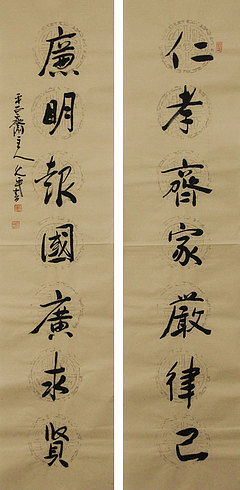 仁孝齊家嚴律己
廉明報國廣求賢